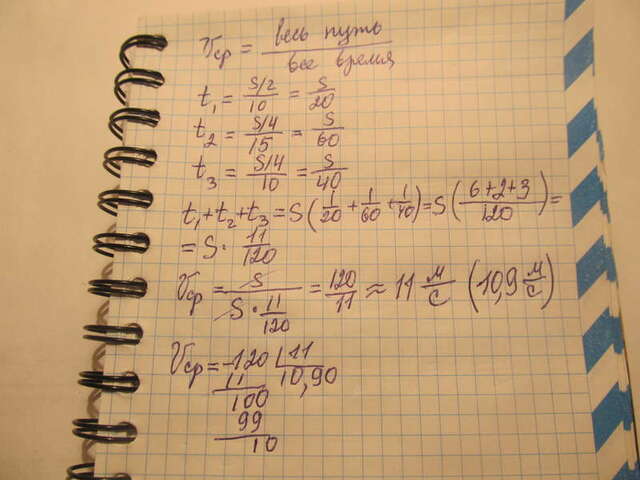 Vср = весь путь / все время
t₁ = S/2 / 10 = S/20
t₂ = S/4 / 15 = S/60
t₃ = S/4 / 10 = S/40
t₁+t₂+t₃ = S(1/20 + 1/60 + 1/40) = S(6+2+3 / 120) =
= S · 11/120
Vср = S / S · 11/120 = 120/11 ≈ 11 м/с (10,9 м/с)
Vср = 120 | 11
11 10,90
100
99
10